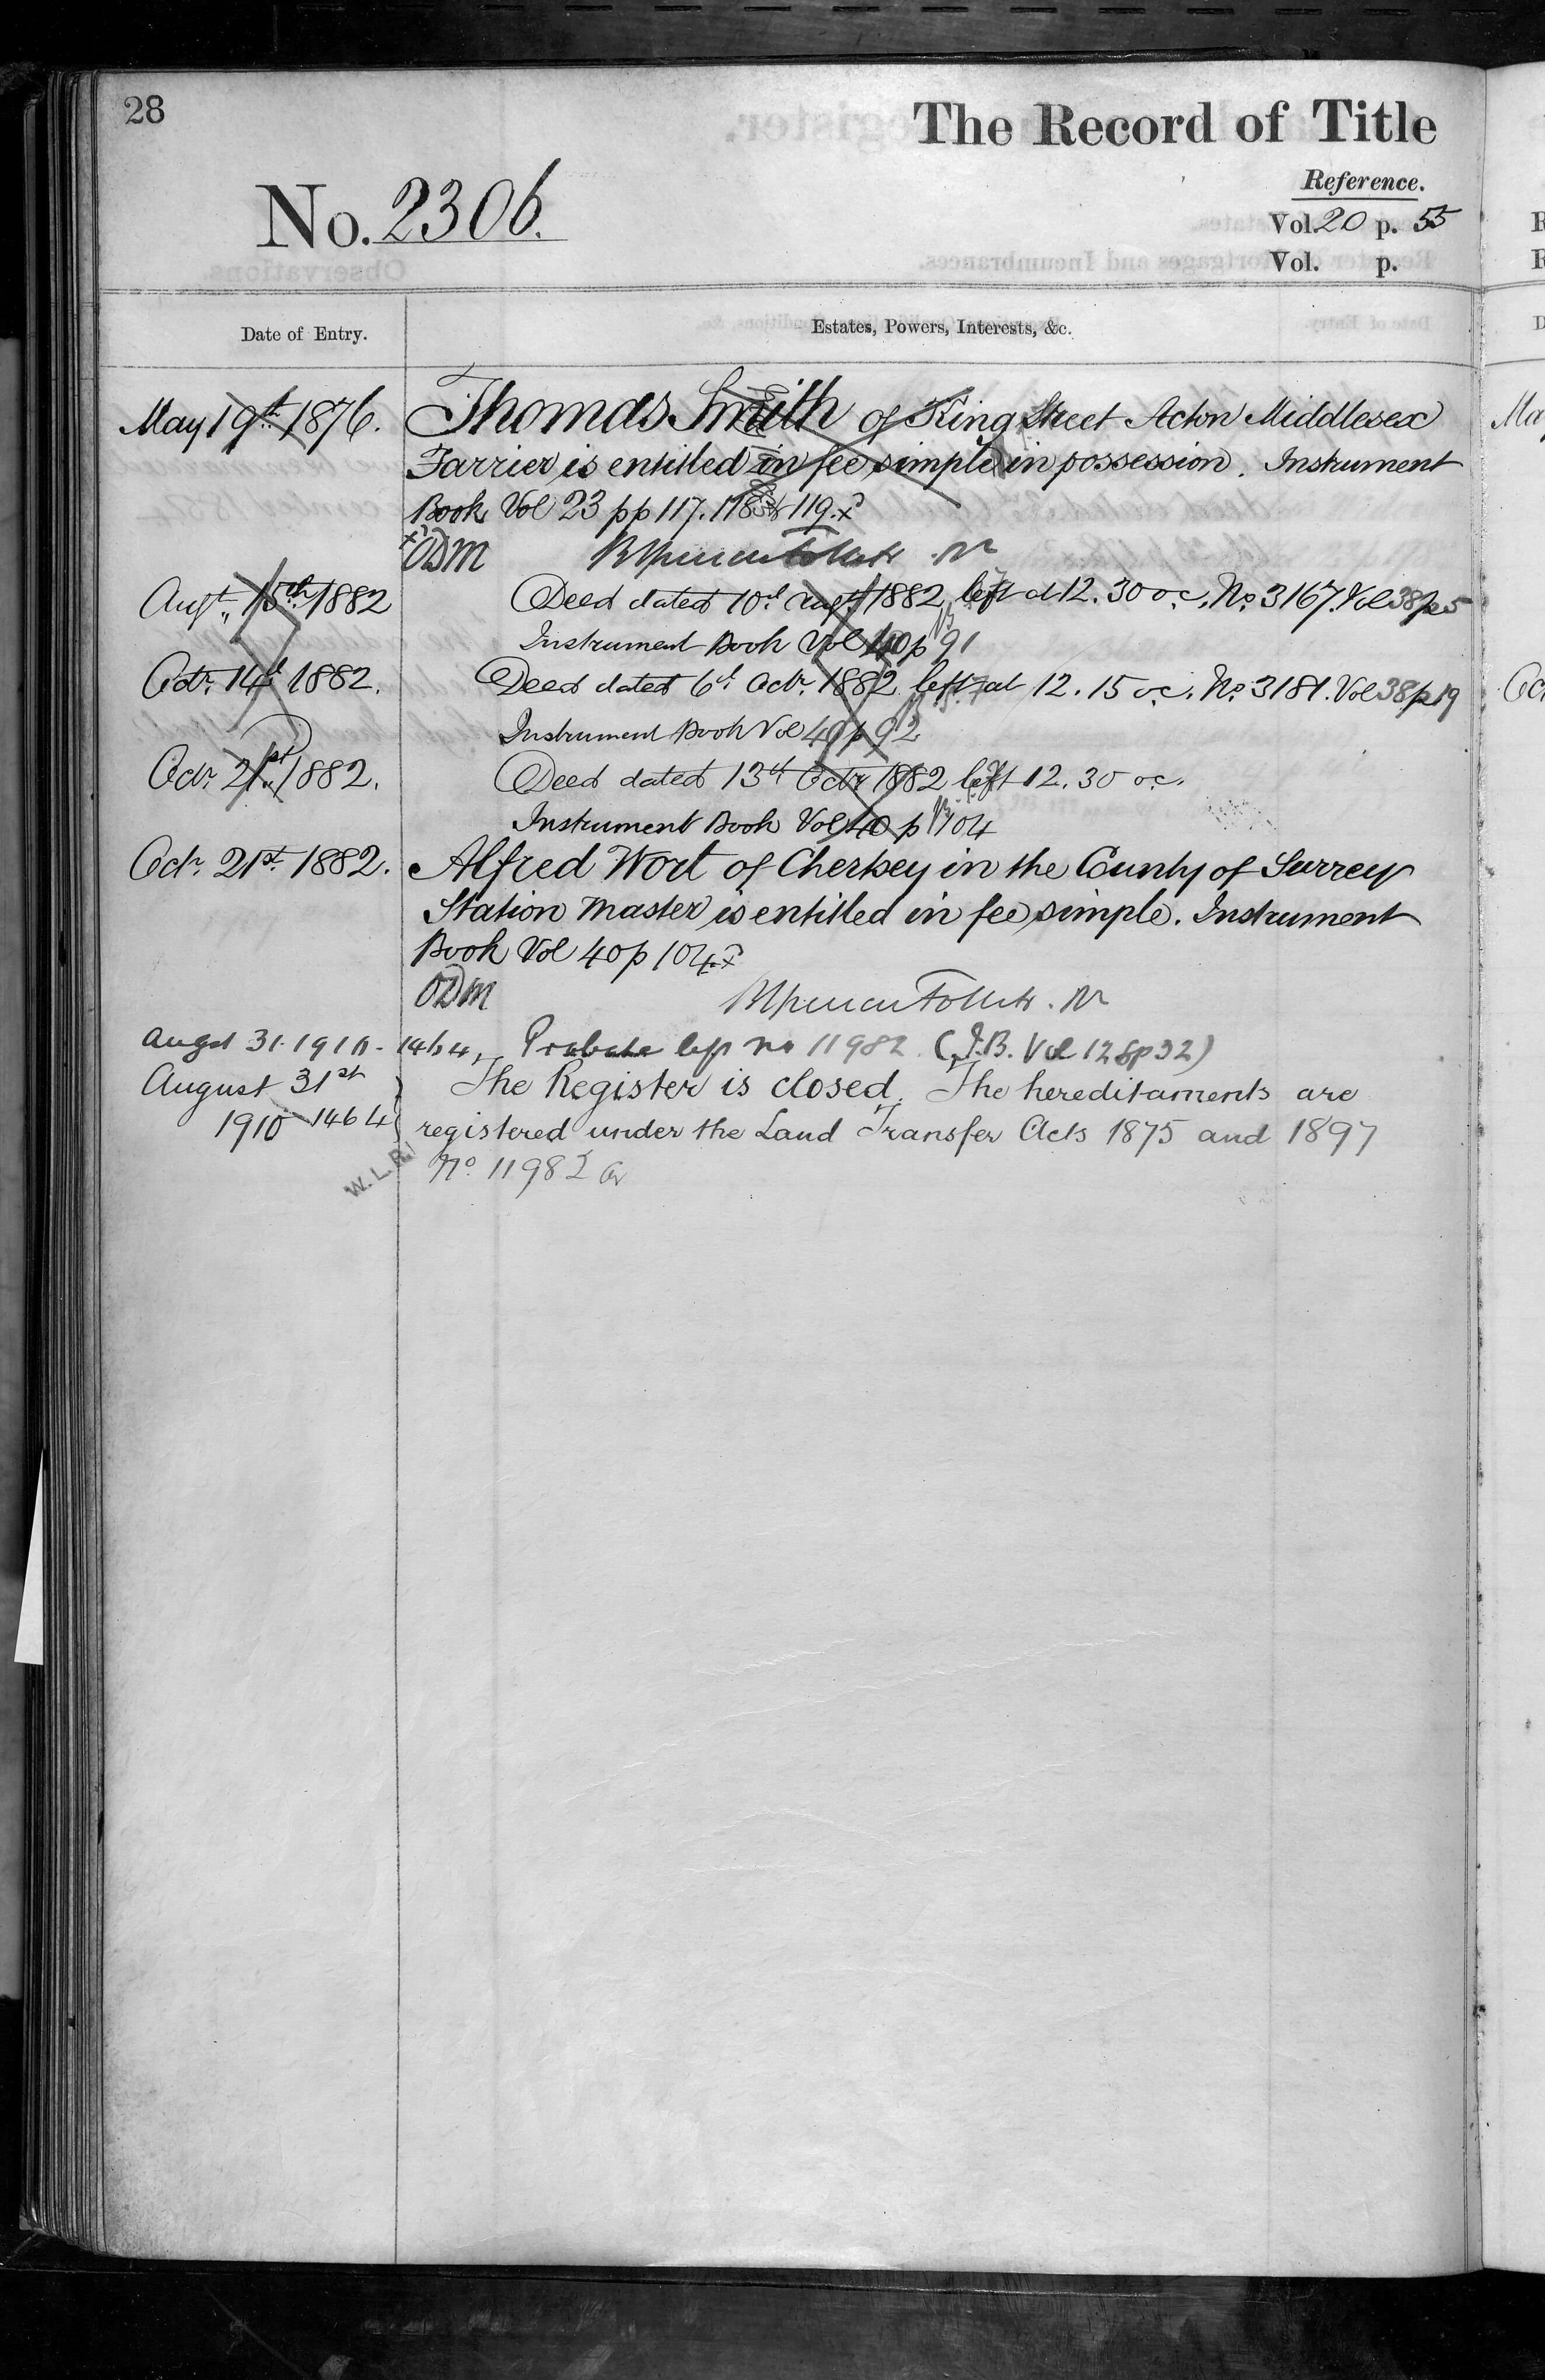 28
The Record of Title
Reference.
No. 2306.
Vol. 20 p. 55
Vol. p.
Date of Entry.
Estates, Powers, Interests, &c.
May 19th 1876.
Thomas Smith of King Street Acton Middlesex
Farrier is entitled in fee simple in possession. Instrument
Book Vol 23 pp 117. 118 & 119. x
x ODM
Augt. 15th 1882
Deed dated 10th Augt 1882 left at 12.30 o.c. No. 3167. Vol 38 p 5
Instrument Book Vol 40 p 91
Octr. 14th 1882.
Deed dated 6th Octr. 1882 left at 12.15 o.c. No. 3181. Vol 38 p 19
Instrument Book Vol 40 p 92
Octr. 21st 1882.
Deed dated 13th Octr 1882 left 12.30 o.c.
Instrument Book Vol 40 p 104
Octr. 21st. 1882.
Alfred Wort of Chertsey in the County of Surrey
Station Master is entitled in fee simple. Instrument
Book Vol 40 p 104. x
ODM
Augst 31. 1910. 1464, Probate left no 11982 (I.B. Vol 128 p 32)
August 31st
The Register is closed. The hereditaments are
1910 1464
registered under the Land Transfer Acts 1875 and 1897
W.L.R.
No. 11982